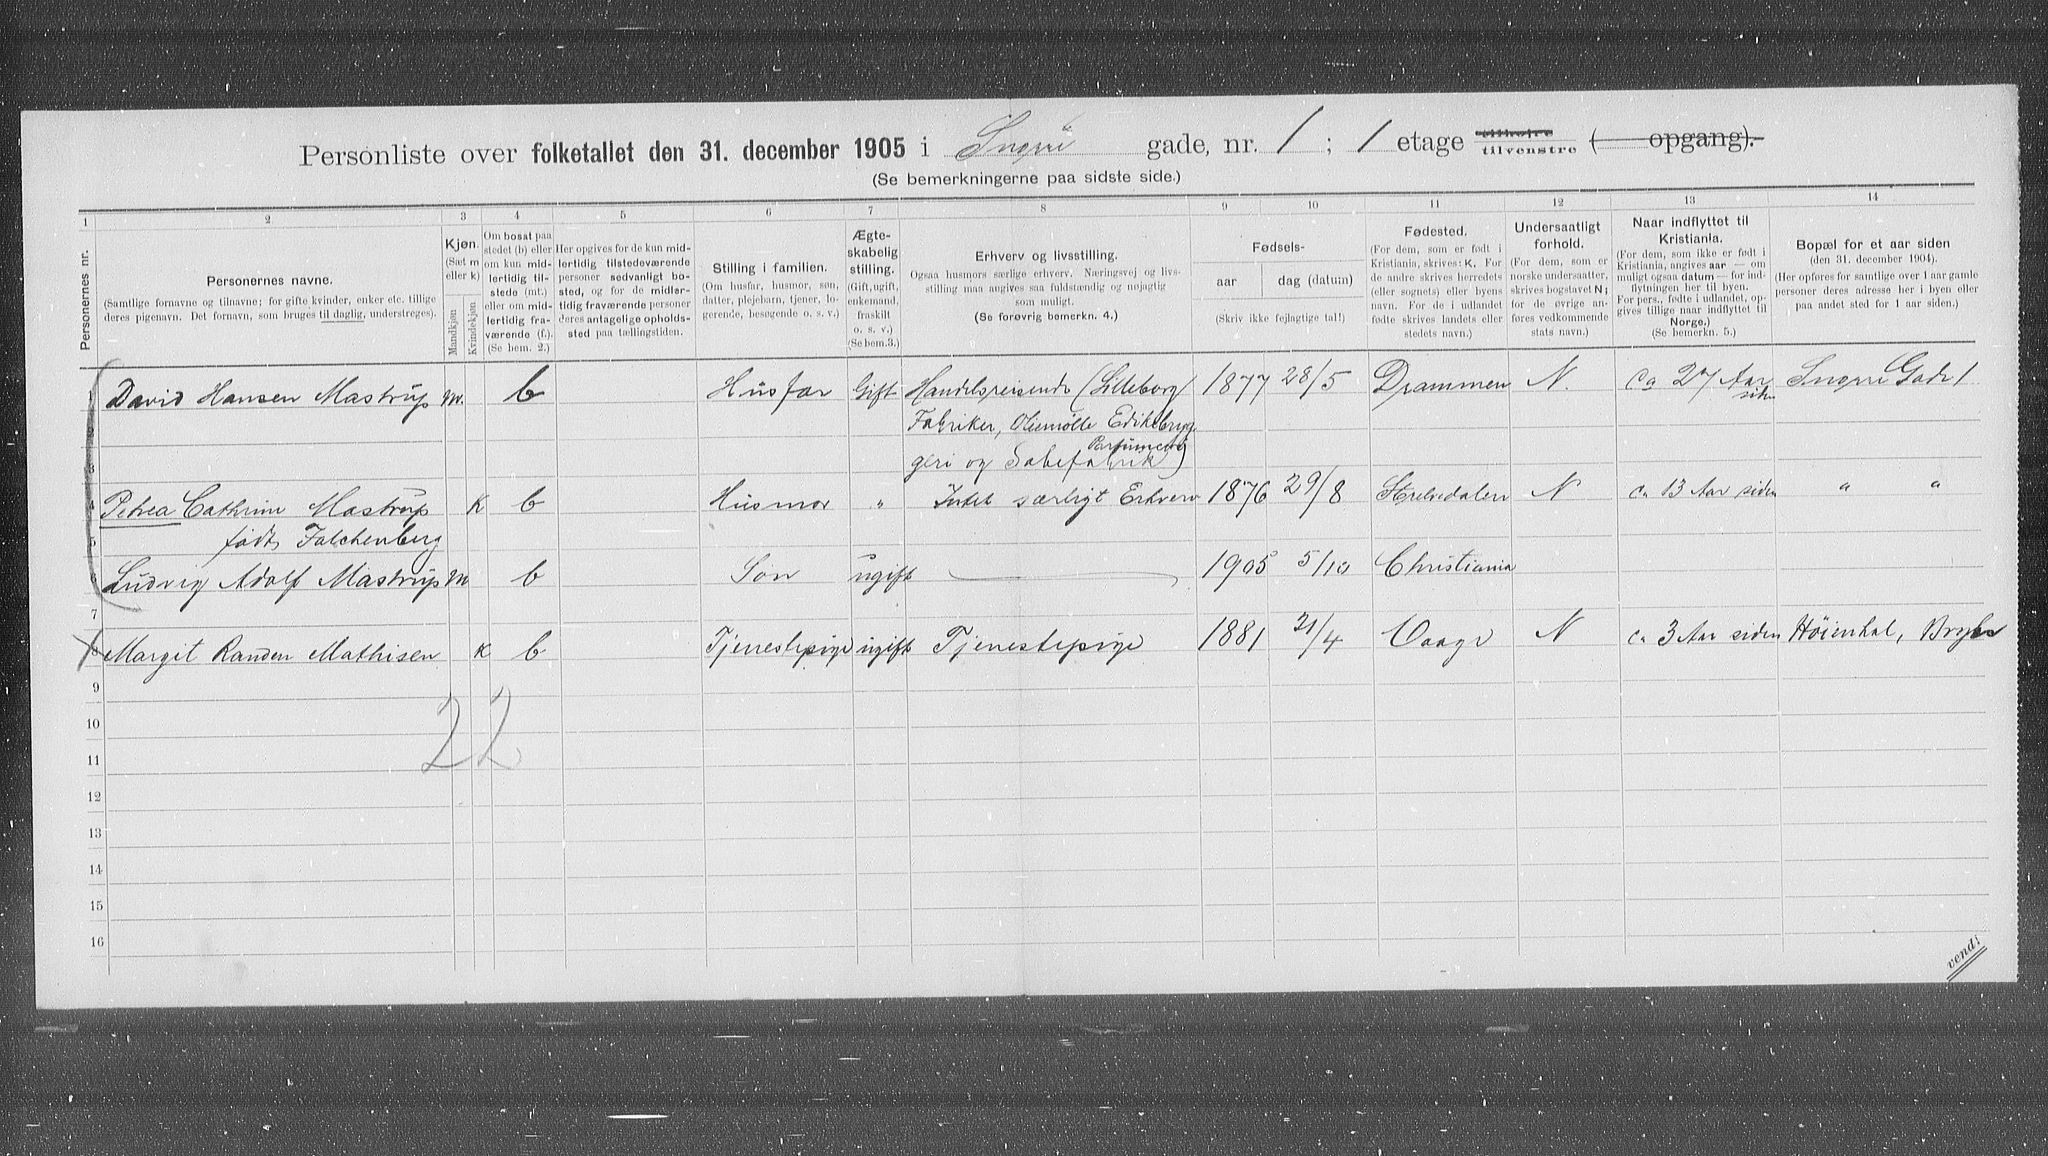 Personliste over folketallet den 31. december 1905 i Snorre gade, nr. 1 ; 1 etage tilhøire tilvenstre ( opgang).
(Se bemerkningerne paa sidste side.)
1 2 3 4 5 6 7 8 9 10 11 12 13 14
Personernes nr.
Personernes navne.
(Samtlige fornavne og tilnavne; for gifte kvinder, enker etc. tillige
deres pigenavn. Det fornavn, som bruges til daglig, understreges).
Kjøn.
(Sæt m
eller k)
Mandkjøn
Kvindekjøn
Om bosat paa
stedet (b) eller
om kun mid-
lertidig til-
stede (mt.)
eller om mid-
lertidig fra-
værende (f.).
(Se bem. 2.)
Her opgives for de kun mid-
lertidig tilstedeværende
personer sedvanligt bo-
sted, og for de midler-
tidig fraværende personer
deres antagelige opholds-
sted paa tællingstiden.
Stilling i familien.
(Om husfar, husmor, søn,
datter, plejebarn, tjener, lo-
gerende, besøgende o. s. v.)
Ægte-
skabelig
stilling.
(Gift, ugift,
enkemand,
fraskilt
o. s. v.)
(Se bem.3.)
Erhverv og livsstilling.
Ogsaa husmors særlige erhverv. Næringsvej og livs-
stilling maa angives saa fuldstændig og nøjagtig
som muligt.
(Se forøvrig bemerkn. 4.)
Fødsels-
aar
dag (datum)
(Skriv ikke fejlagtige tal!)
Fødested.
(For dem, som er født i
Kristiania, skrives: K. For
de andre skrives herredets
(eller sognets) eller byens
navn. For de i udlandet
fødte skrives landets eller
stedets navn.)
Undersaatligt
forhold.
(For dem, som er
norske undersaatter,
skrives bogstavet N;
for de øvrige an-
føres vedkommende
stats navn.)
Naar indflyttet til
Kristiania.
(For dem, som ikke er født i
Kristiania, angives aar — om
muligt ogsaa datum — for ind-
flytningen her til byen.
For pers., fødte i udlandet, op-
gives tillige naar indflyttet til
Norge.)
(Se bemerkn. 5.)
Bopæl for et aar siden
(den 31. december 1904).
(Her opføres for samtlige over 1 aar gamle
personer deres adresse her i byen eller
paa andet sted for 1 aar siden.)
1 David Hansen Mastrup m. b Husfar Gift Handelsreisende (Lilleborg 1877 28/5 Drammen N ca 27 Aar siden Snorre Gade 1
2 Fabriker, Oliemølle Edikebryg
Parfumeri
3 geri og Sæbefabrik)
4 Petrea Cathrine Mastrup K b Husmor " Intet særligt Erhverv 1876 29/8 N ca 13 Aar siden " "
5 født Falchenberg
6 Ludvig Adolf Mastrup m b Søn ugift 1905 5/10 Christiania
7
8 Margit Randen Mathisen K b Tjenestepige ugift Tjenestepige 1881 21/4 Vaage N ca 3 Aar siden Høienhal, Bryn
9
22
10
11
12
13
14
15
16
vend!